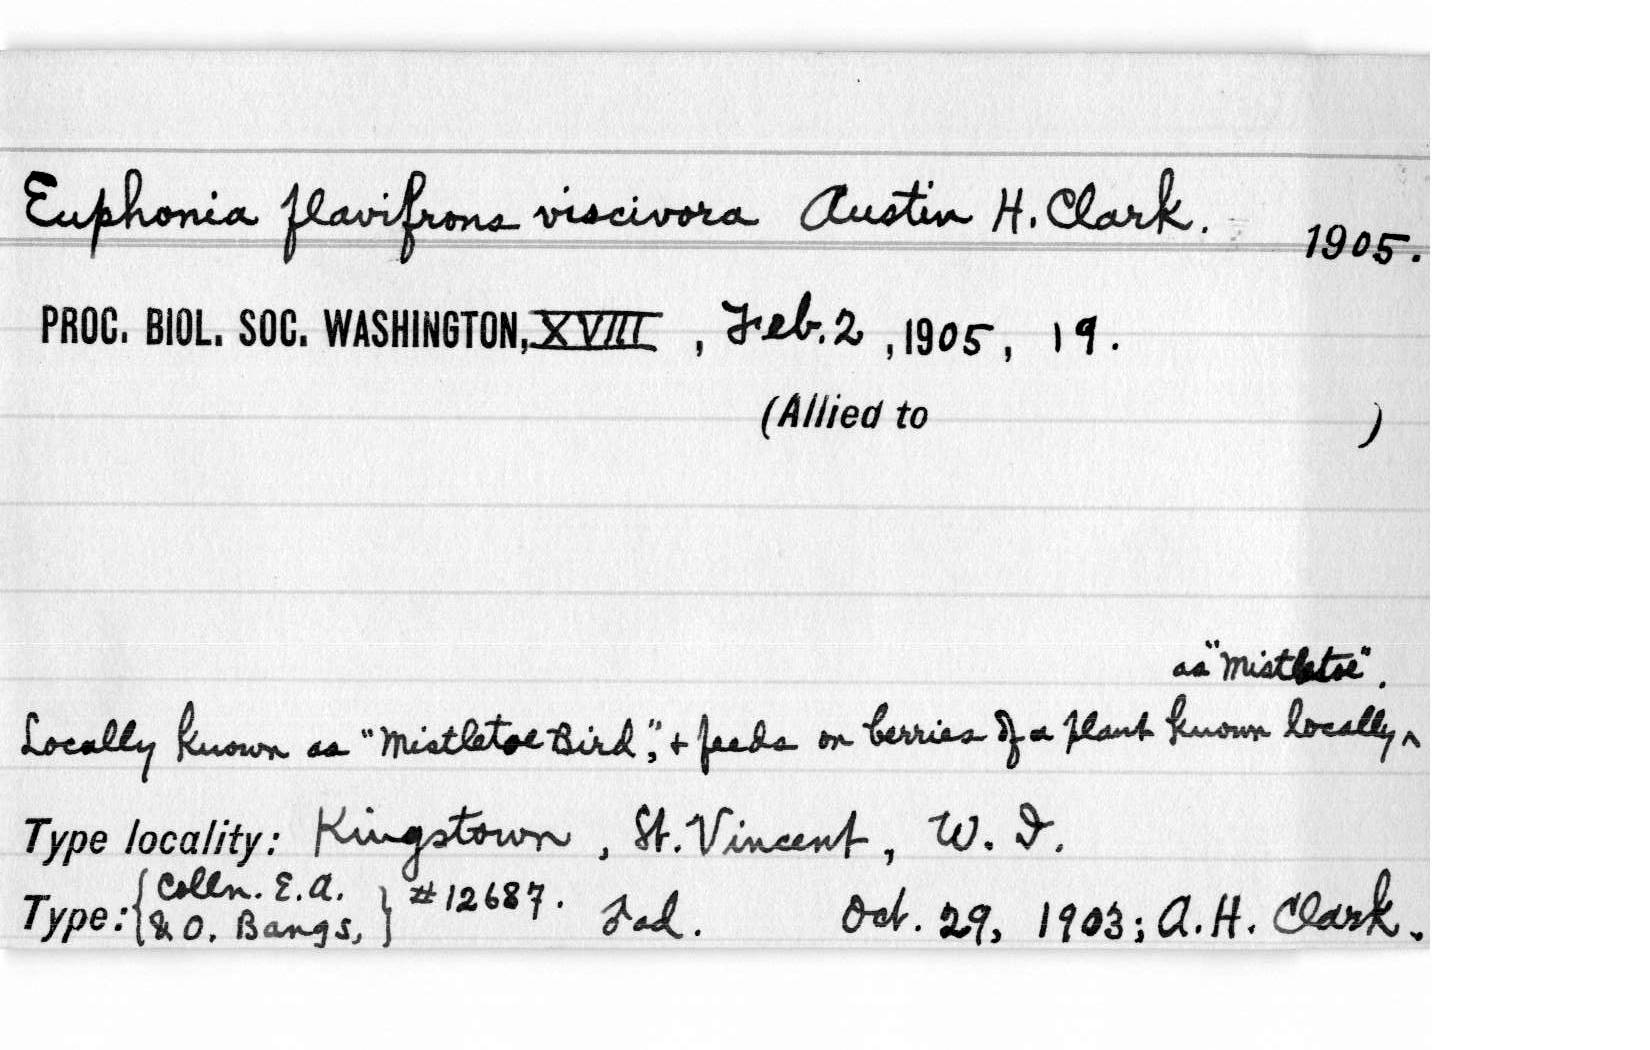 Euphonia flavifrons viscivora Austin H. Clark. 1905.
PROC. BIOL. SOC. WASHINGTON, XVIII, Feb. 2, 1905, 19.
(Allied to )
as "Mistletoe".
Locally known as "Mistletoe Bird", + feeds on berries of a plant known locally ^
Type locality: Kingstown, St. Vincent, W. I.
Type: { Colln. E. A. & O. Bangs, } #12687. Fad. Oct. 29, 1903; A. H. Clark.